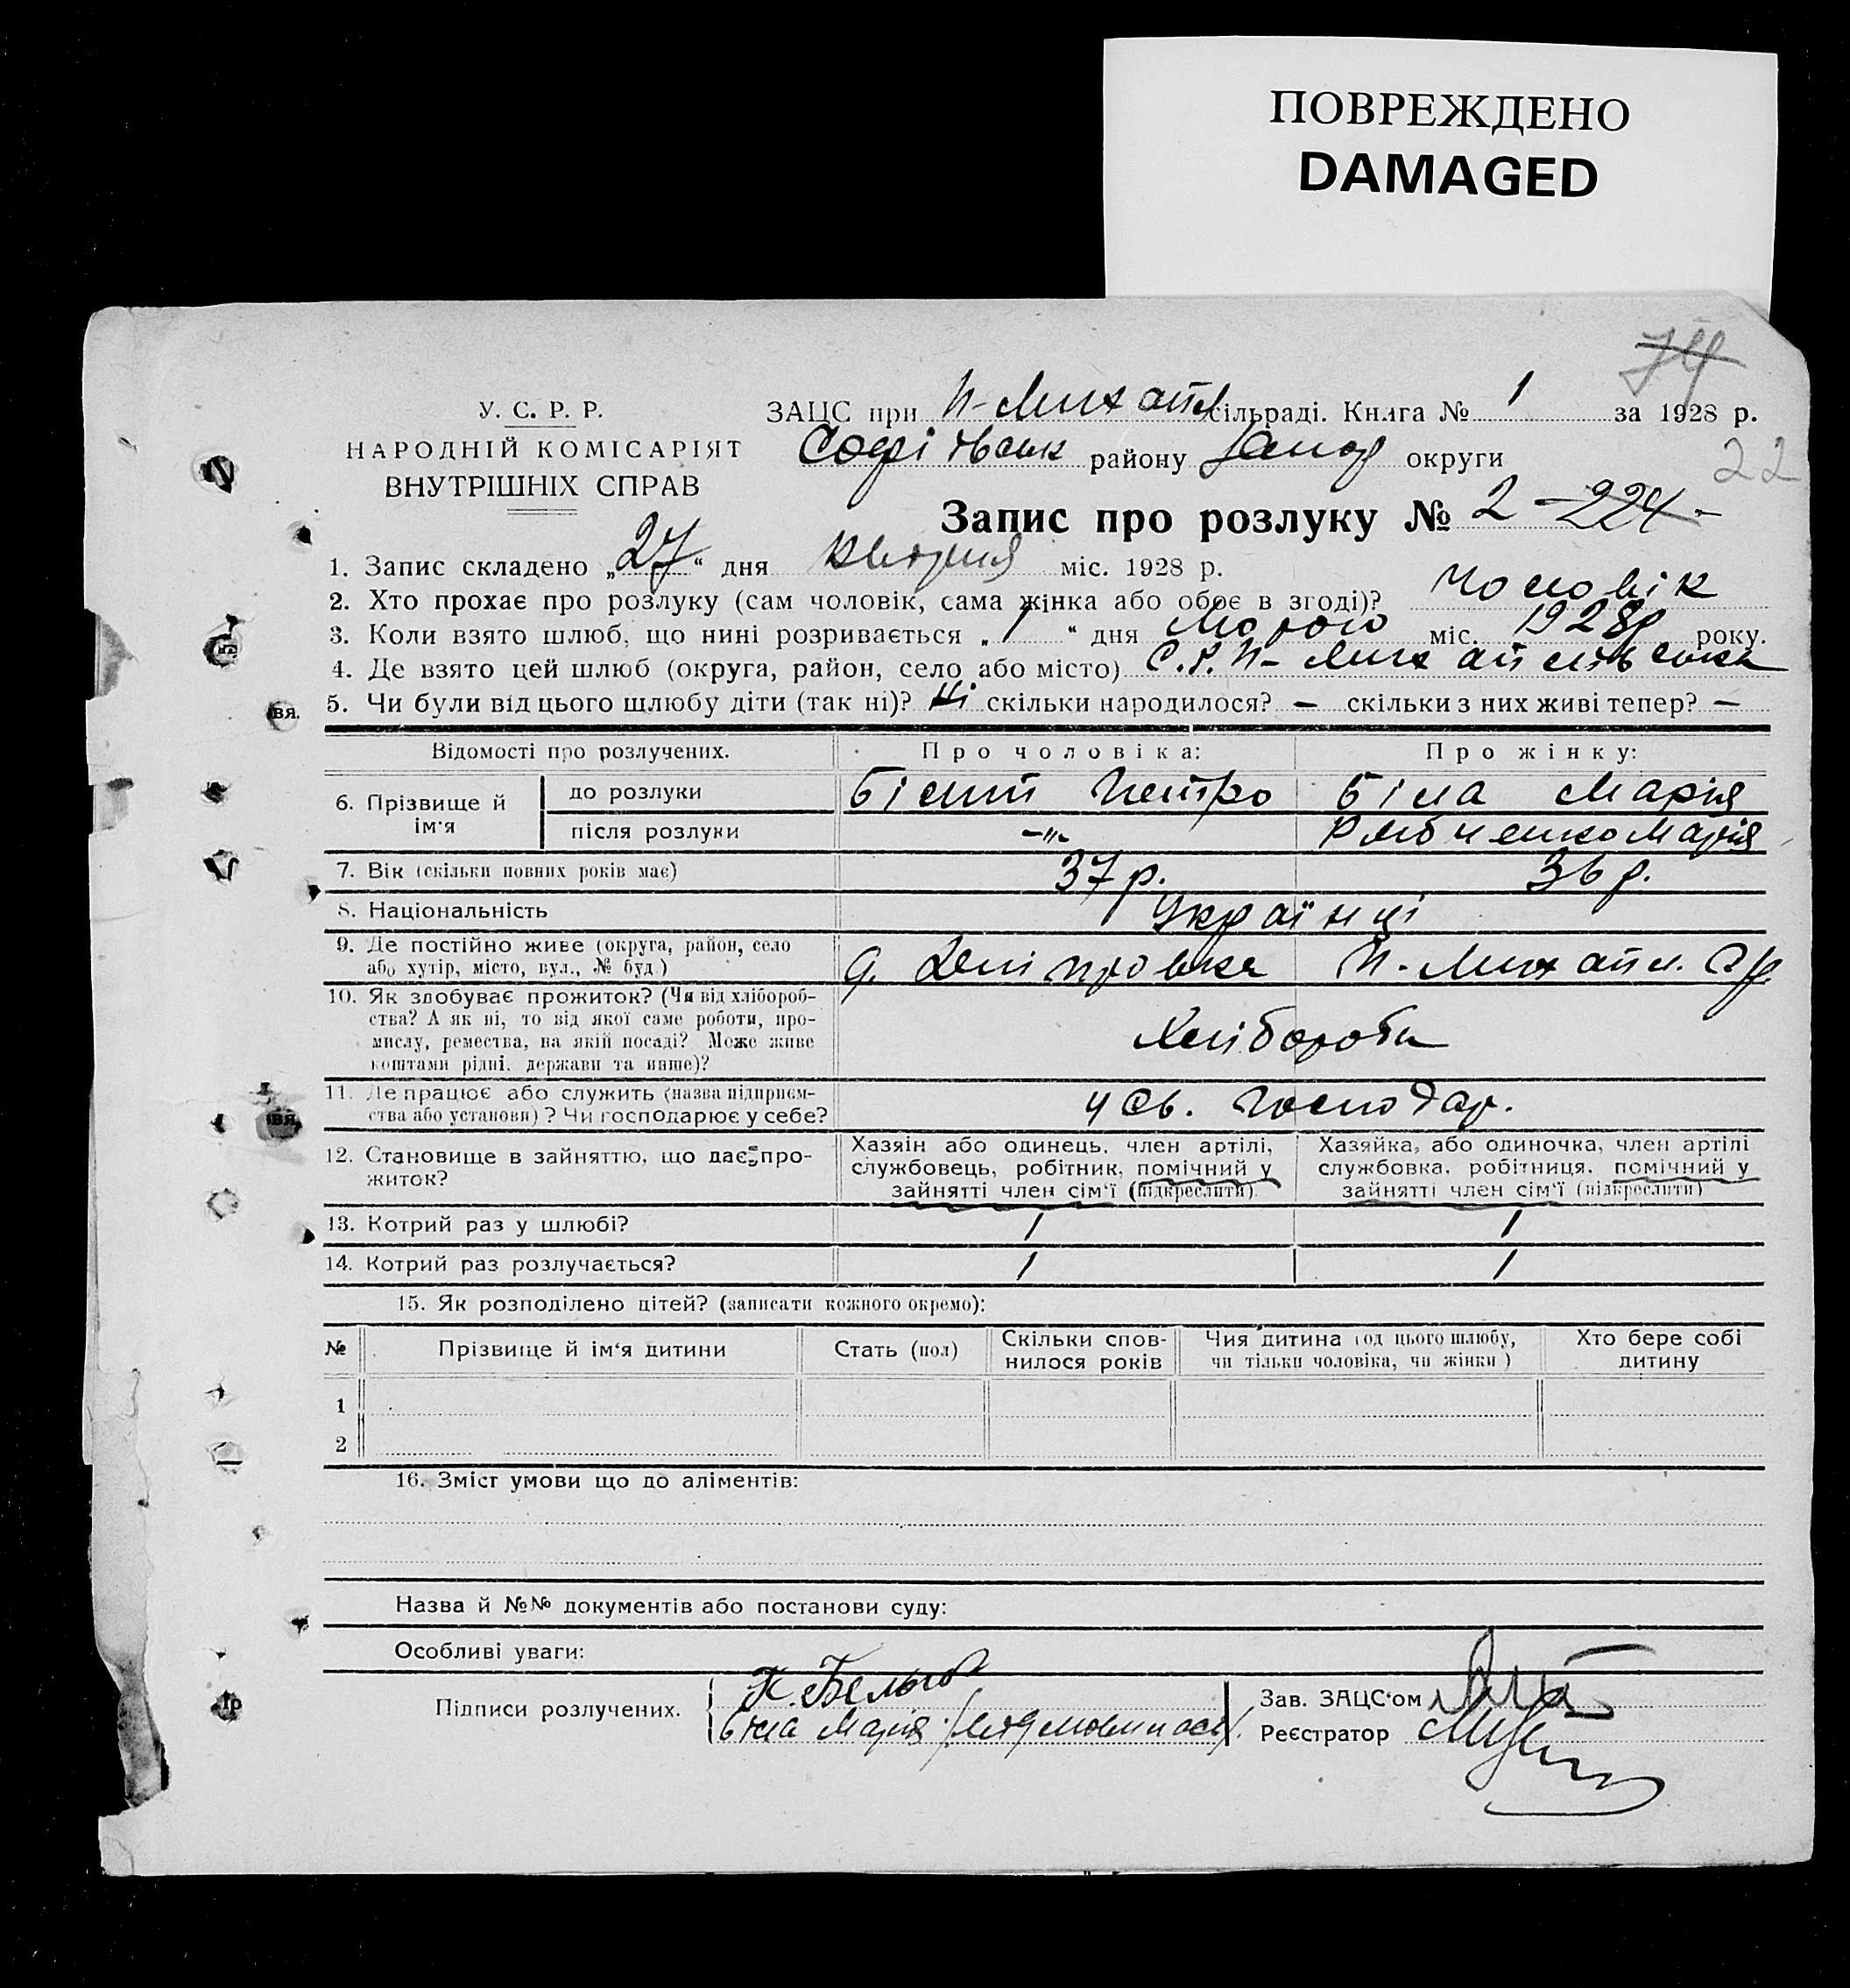 ПОВРЕЖДЕНО
DAMAGED
74
У. С. Р. Р.
НАРОДНІЙ КОМІСАРІЯТ
ВНУТРІШНІХ СПРАВ
ЗАЦС при Н-Михайл сільраді. Книга № 1 за 1928 р.
Софіївськ району Запор округи
22
Запис про розлуку № 2 -224-
1. Запис складено „27“ дня квітня міс. 1928 р.
2. Хто прохає про розлуку (сам чоловік, сама жінка або обоє в згоді)? чоловік
3. Коли взято шлюб, що нині розривається „1“ дня міс. 1928р року.
4. Де взято цей шлюб (округа, район, село або місто) С.Р. Н-Михайлівська
5. Чи були від цього шлюбу діти (так ні)? Ні скільки народилося? — скільки з них живі тепер? —
Відомості про розлучених. Про чоловіка: Про жінку:
6. Прізвище й ім‘я до розлуки Білий Петро Біла Марія
після розлуки -"- Рябченко Марія
7. Вік (скільки повних років має) 37 р. 36 р.
8. Національність Українці
9. Де постійно живе (округа, район, село
або хутір, місто, вул., № буд.) Дніпровка Н.-Михайл.
10. Як здобуває прожиток? (Чи від хлібороб-
ства? А як ні, то від якої саме роботи, про-
мислу, ремества, на якій посаді? Може живе
коштами рідні, держави та инше)? Хлібороби
11. Де працює або служить (назва підприєм-
ства або установи)? Чи господарює у себе? у св. господар.
12. Становище в зайняттю, що дає про-
житок?
Хазяін або одинець, член артілі,
службовець, робітник, помічний у
зайнятті член сім‘ї (підкреслити).
Хазяйка, або одиночка, член артілі
службовка, робітниця, помічний у
зайнятті член сім‘ї (підкреслити)
13. Котрий раз у шлюбі? 1 1
14. Котрий раз розлучається? 1 1
15. Як розподілено дітей? (записати кожного окремо):
№ Прізвище й ім‘я дитини Стать (пол) Скільки спов-
нилося років Чия дитина (од цього шлюбу,
чи тільки чоловіка, чи жінки) Хто бере собі
дитину
1
2
16. Зміст умови що до аліментів:
Назва й №№ документів або постанови суду:
Особливі уваги:
Підписи розлучених. Біла Марія
Зав. ЗАЦС‘ом
Реєстратор